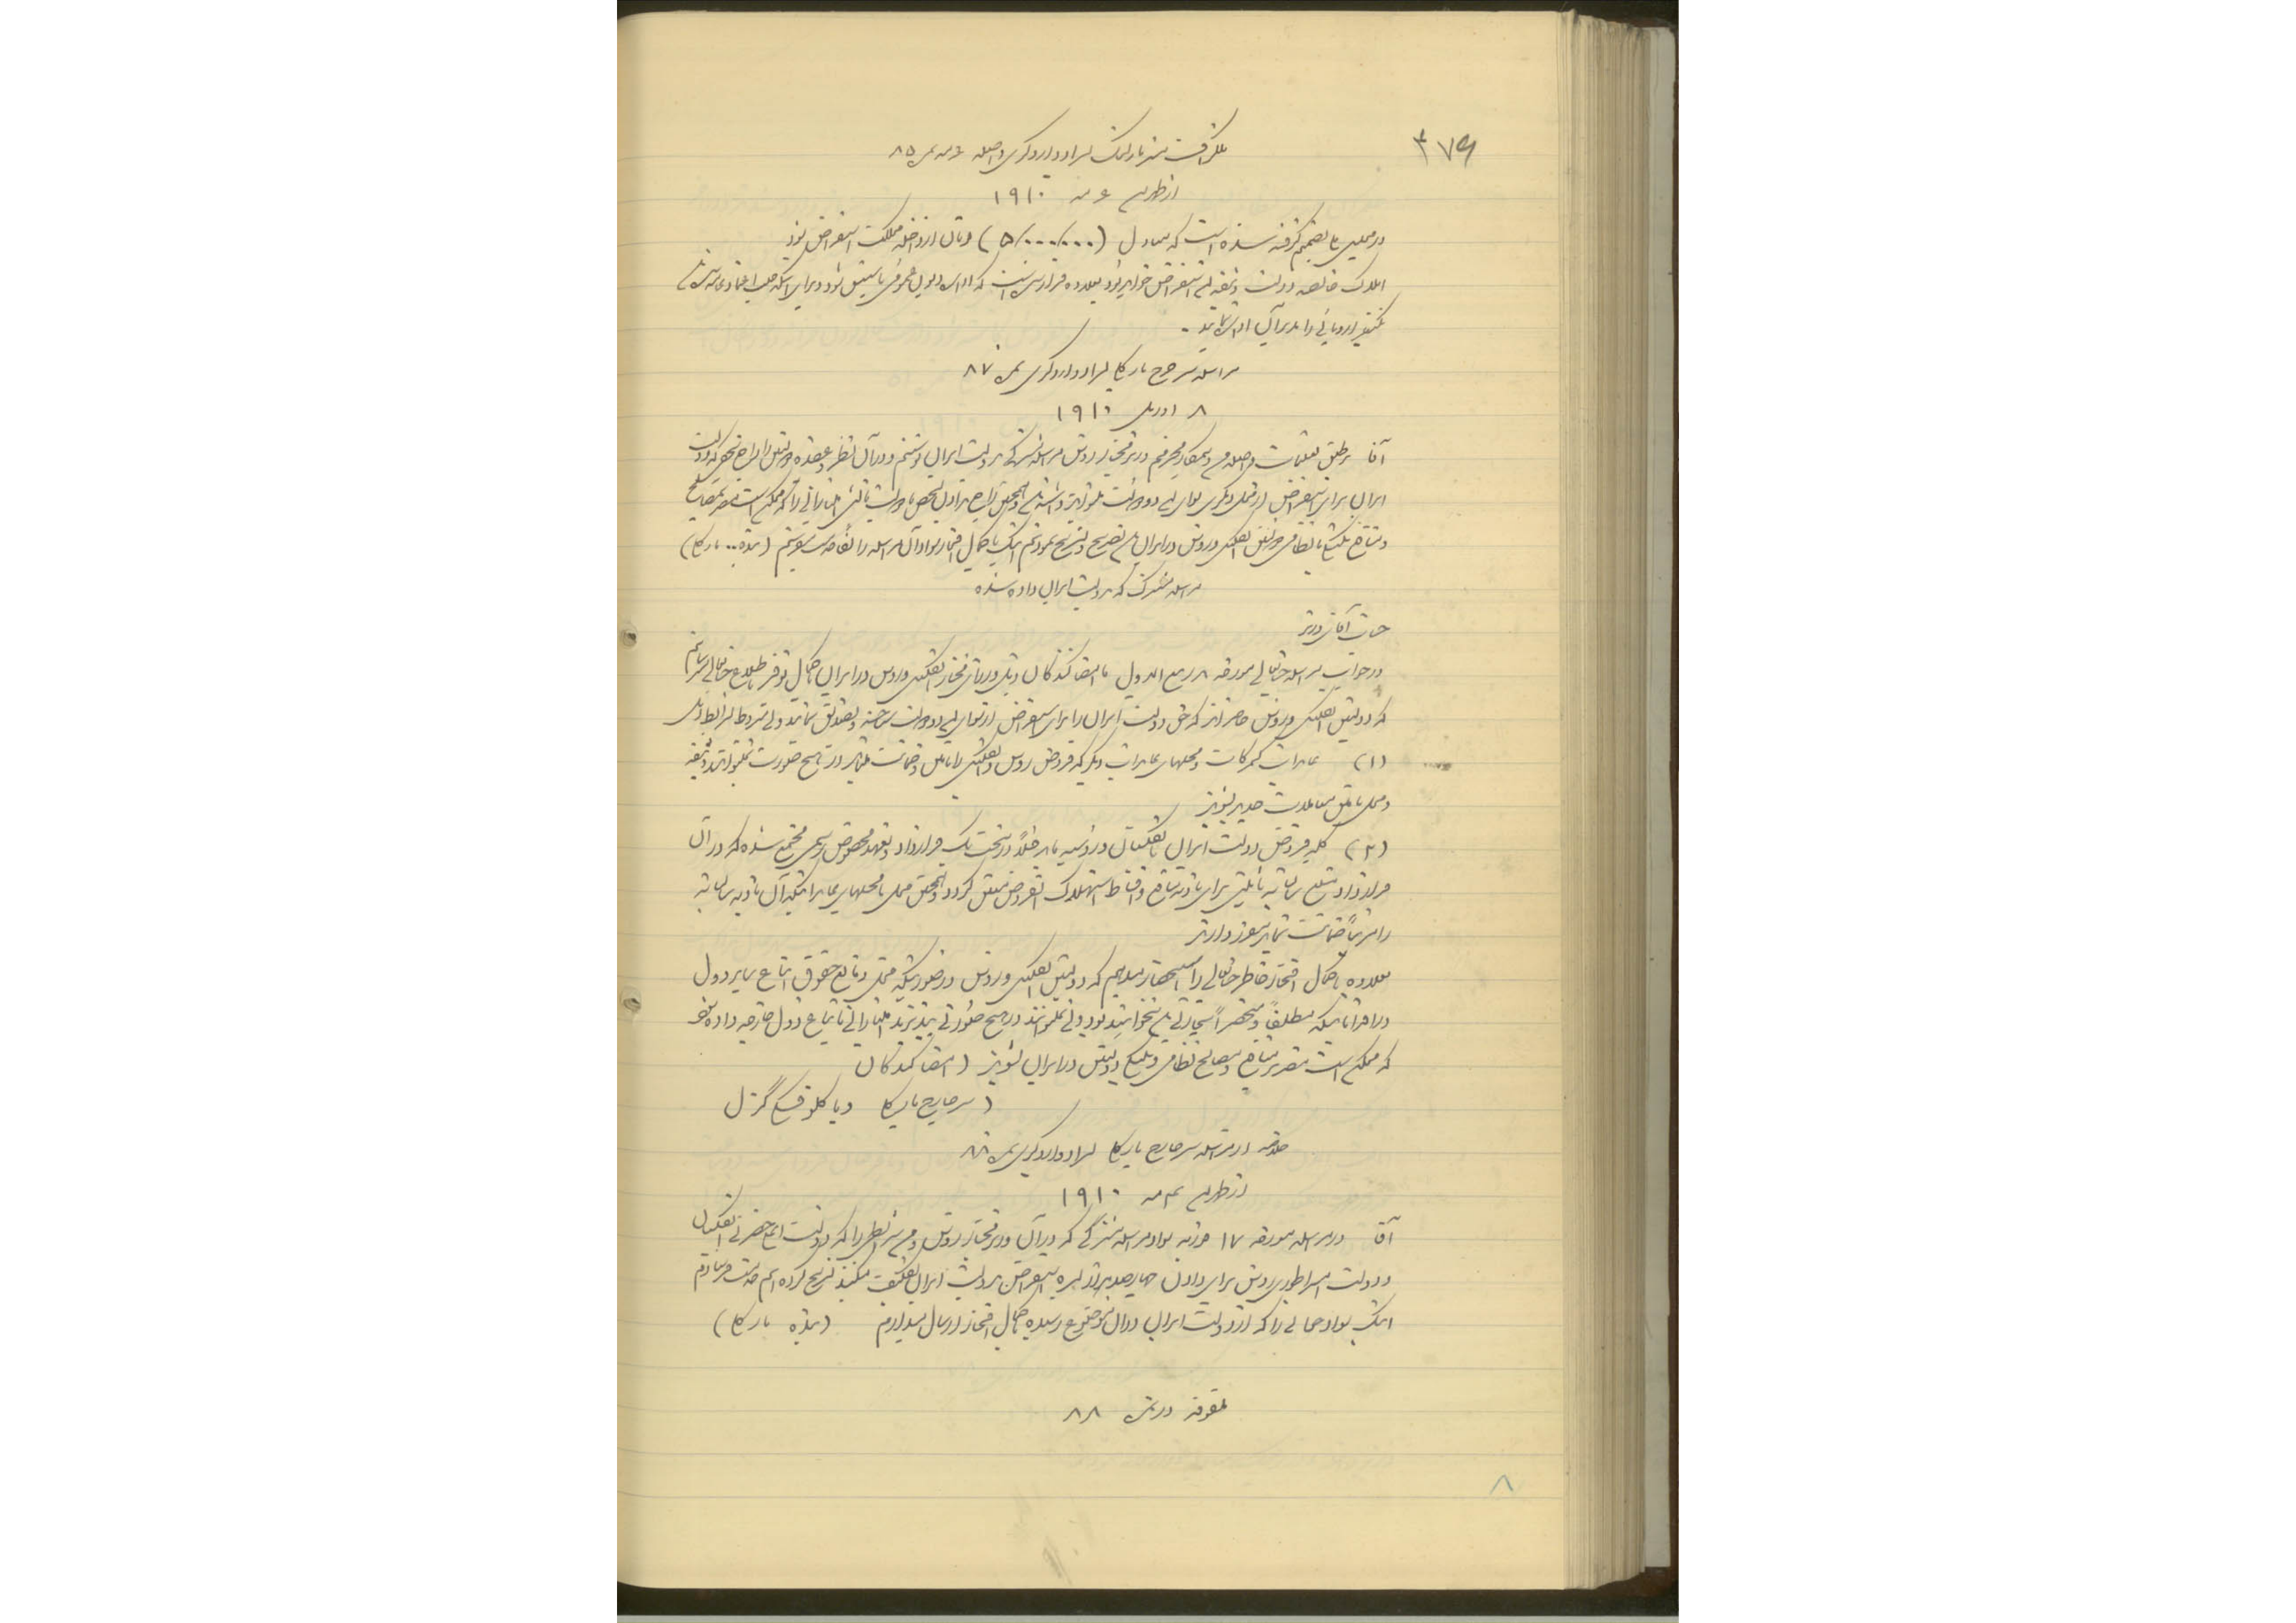 ۳۷۹
تلگراف مستر مارلینگ بسر ادوارد گری واصله ۶ مه نمره ۸۵
از طهران ۶ مه ۱۹۱۰
در مجلس تصمیم گرفته شده است که معادل (۵/۰۰۰/۰۰۰) تومان از داخله مملکت استقراض شود
املاک خالصه دولت وثیقه این استقراض خواهد بود بعلاوه قرار است که اداره دیون عمومی تاسیس شود و برای اینکه جلب اعتماد
یکنفر اروپائی را مدیر آن اداره نمایند .
مراسله سر جرج بارکلی بسر ادوارد گری نمره ۸۷
۸ اوریل ۱۹۱۰
آقا بر طبق تعلیمات واصله من و همکار محترم وزیر مختار روس مراسله مشترکی بدولت ایران نوشتیم و در آن نظر و عقیده دولتین را راجع
ایران برای استقراض از محل دیگری سوای این دو دولت
و منافع پلتیکی یا نظامی دولتین انگلیس و روس در ایران باشد تصریح و تشریح نمودیم اینک با کمال افتخار سواد آن مراسله را لفا میفرستم (بنده .. بارکلی)
مراسله مشترک که بدولت ایران داده شده
جناب آقای وزیر
در جواب مراسله جنابعالی مورخه ۸ ربیع الاول ما امضا کنندگان ذیل وزرای مختار انگلیس و روس در ایران با کمال توقیر باطلاع جنابعالی میرسانیم
که دولتین انگلیس و روس حاضرند که حق دولت ایران را برای استقراض از سوای این دو دولت شناخته و تصدیق نمایند ولی مشروط بشرایط ذیل
(۱) عایدات گمرکات و محلهای عایدات دیگر که قروض روس و انگلیس را تامین و ضمانت مینماید در هیچ صورت نمیتوانند وثیقه
و محل تامین معاملات جدید بشوند
(۲) کلیه قروض دولت ایران بانگلستان و روسیه باید قبلاً در تحت یک قرارداد و تعهد مخصوص رسمی مجتمع شده که در آن
قرارداد مبلغ سالیانه برای تادیه منافع و اقساط استهلاک قروض معین گردد و همچنین محل یا محلهای عایداتیکه آن تادیه سالیانه
را مرتباً ضمانت نماید معین دارند
بعلاوه با کمال افتخار خاطر جنابعالی را استحضار میدهیم که دولتین انگلیس و روس در صورتیکه مخل و مانع حقوق اتباع سایر دول
در اقداماتیکه مطلقاً و منحصراً تجارتی باشد نخواهند بود ولی نمیتوانند در هیچ صورتی بپذیرند امتیازاتی باتباع دول خارجه داده شود
که ممکن است مضر بمنافع و مصالح نظامی و پلتیکی دولتین در ایران بشوند (امضا کنندگان
(سر جارج بارکلی و پاکلوفسکی گزل
خلاصه از مراسله سر جارج بارکلی بسر ادوارد گری نمره ۸۸
از طهران ۱۹۱۰
آقا در مراسله مورخه ۱۷ فوریه سواد مراسله مشترکی که در آن وزیر مختار روس و من شرایطی را که دولت اعلیحضرتی انگلستان
و دولت امپراطوری روس برای دادن چهارصد هزار لیره استقراض بدولت ایران تکلیف میکنند تشریح کرده ایم خدمت فرستادم
اینک سواد جوابی را که از دولت ایران در آن موضوع رسیده با کمال افتخار ارسال میدارم (بنده بارکلی)
ملفوفه در نمره ۸۸
۸